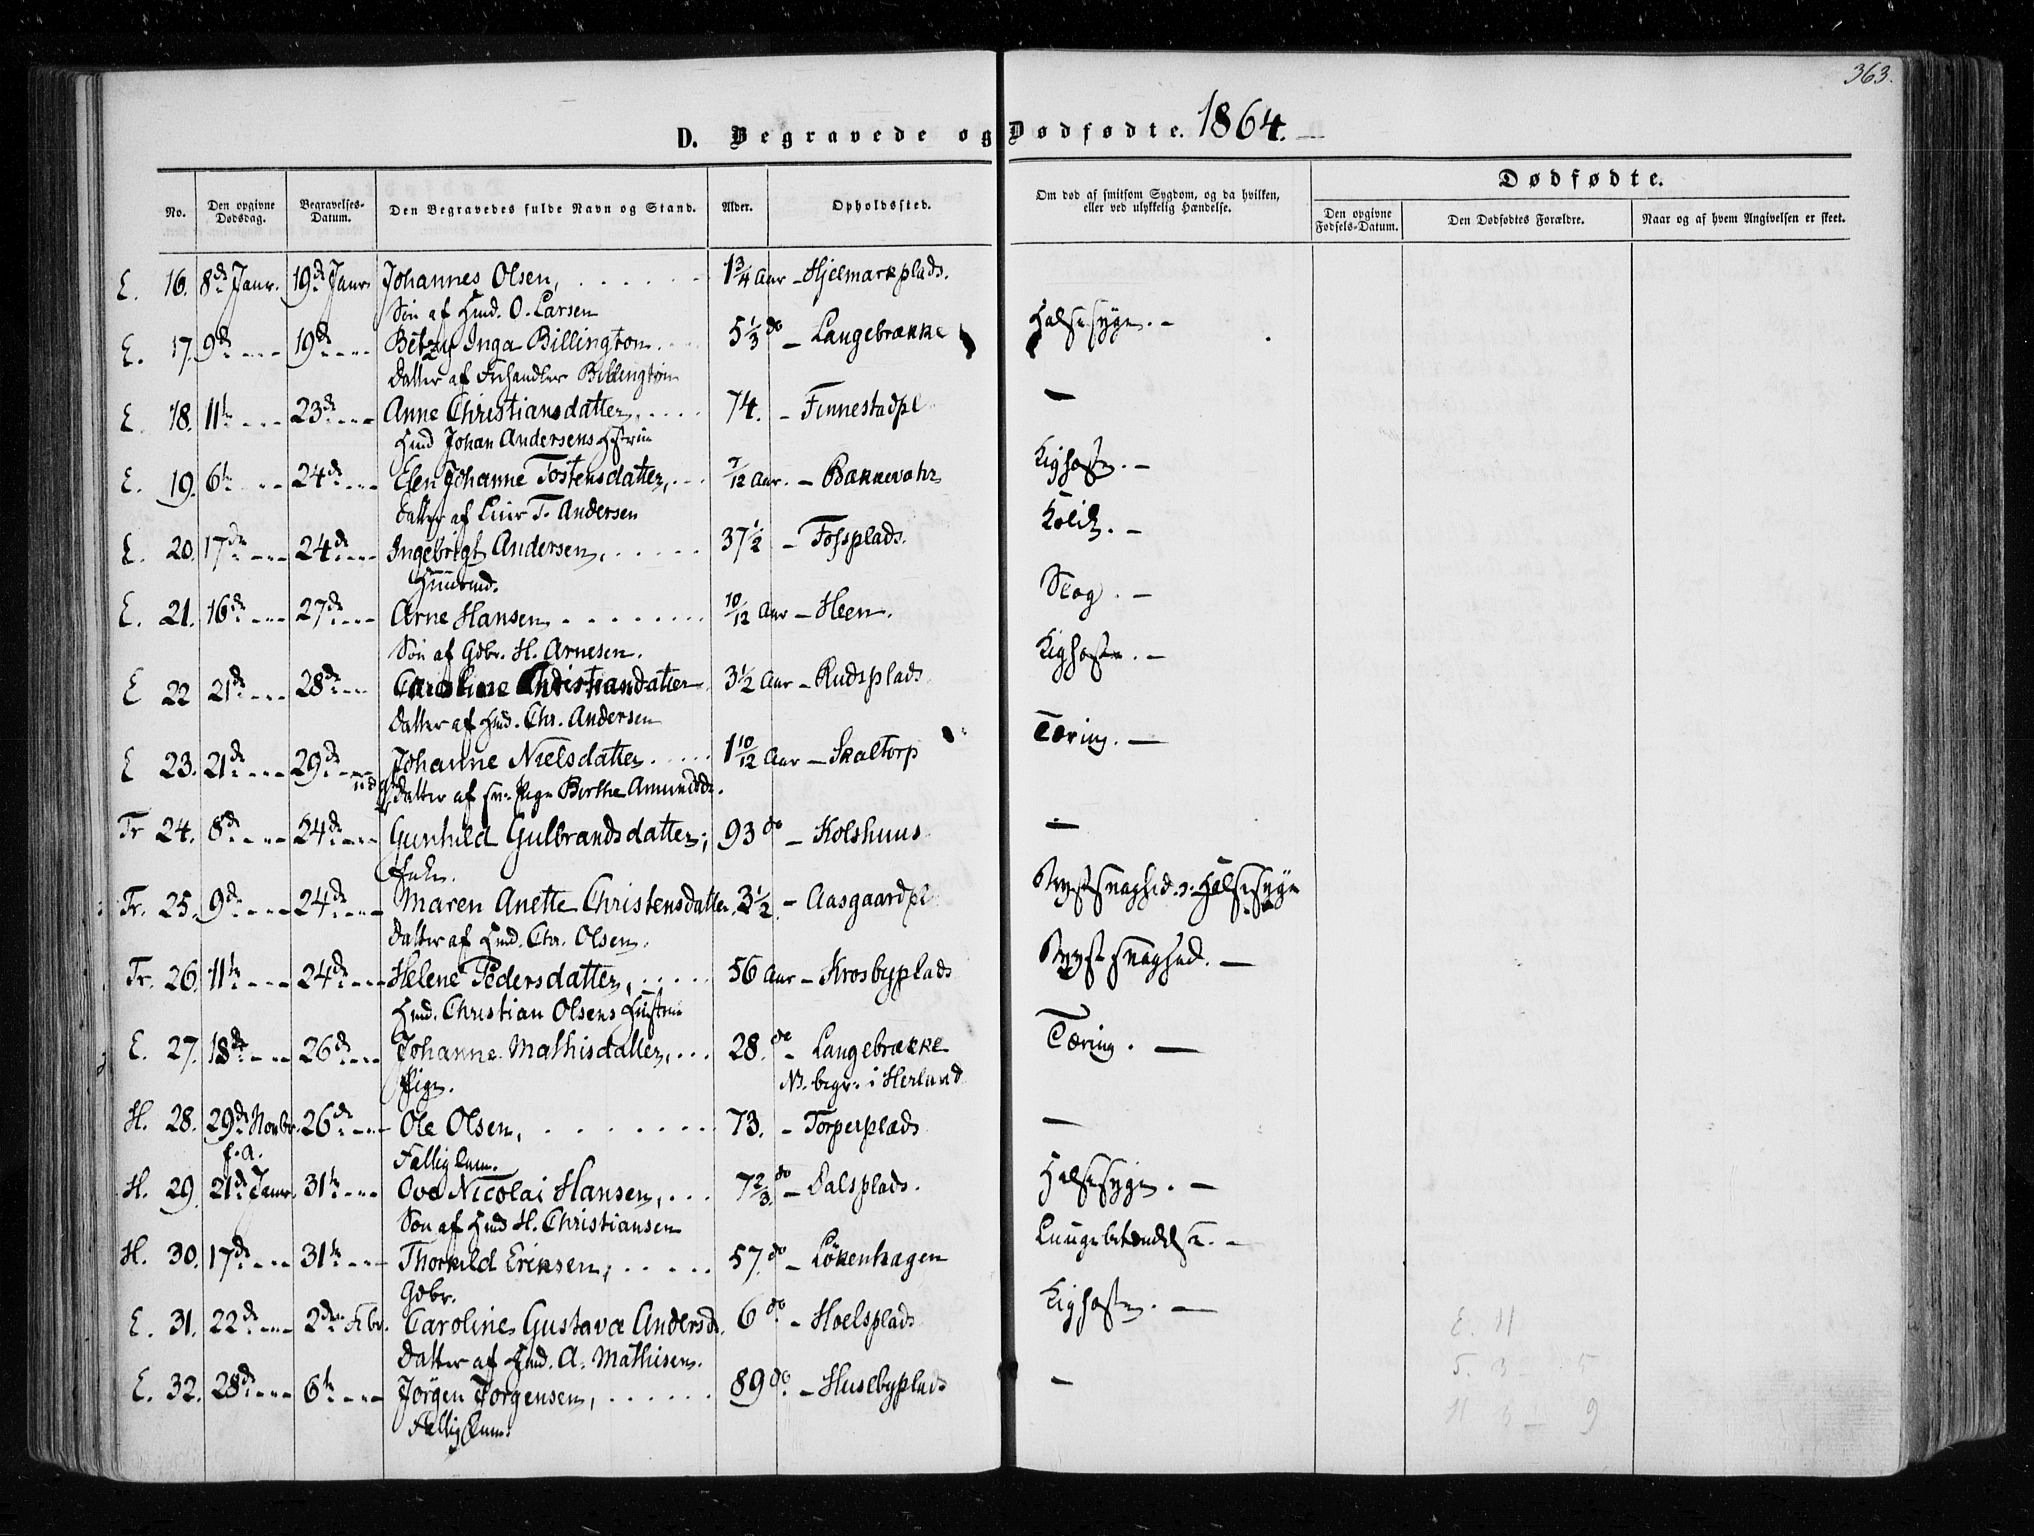 363.
D. Begravede og Dødfødte. 1864.
No. Den opgivne Dødsdag. Begravelses-Datum. Den Begravedes fulde Navn og Stand. Alder. Opholdssted. Om død af smitsom Sygdom, og da hvilken, eller ved ulykkelig Hændelse. Dødfødte.
Den opgivne Fødsels-Datum. Den Dødfødtes Forældre. Naar og af hvem Angivelsen er skeet.
E. 16. 8de Janr. 19de Janr. Johannes Olsen, 1 3/4 Aar – Hjelmarkplads.
Søn af Hmd. O. Larsen
E. 17. 9de 19de Betzy Inga Billington 5 1/3 do – Langebrække Halsesyge. –
Datter af Billington
E. 18. 11te 23de Anne Christiansdatter, 74. – Finnestadpl. –
Hmd Johan Andersens Hustru
E. 19. 6te 24de Elen Johanne Tostensdatter, 7/12 Aar. – Bakkevahr Kighoste. –
Datter af T. Andersen
E. 20. 17de 24de Ingebrigt Andersen, 37 1/2 – Fossplads. Kolik. –
Huusmd.
E. 21. 16de 27de Arne Hansen 10/12 Aar – Heen. Slag. –
Søn af Gdbr. H. Arnesen. Kighoste. –
E 22 21de 28de Caroline Christiansdatter 3 1/2 Aar – Rudsplads
Datter af Hmd. Chr. Andersen
E 23. 21de 29de Johanne Nielsdatter 1 10/12 Aar – Skaltorp Tæring. –
Datter af Pige Berthe Amundsdr.
Tr 24. 8de 24de Gunhild Gulbrandsdatter; 93 do – Kolshuus –
Enke.
Tr. 25. 9de 24de Maren Anette Christensdatter 3 1/2 – Aasgaardpl. Brystsvaghed o: Halsesyge
Datter af Hmd. Chr. Olsen.
Tr. 26. 11te 24de Helene Pedersdatter, 56 Aar – Krosbyplads Brystsvaghed. –
Hmd. Christian Olsens Hustru
E. 27. 18de 26de Johanne Mathisdatter, 28. do – Langebrække Tæring. –
Pige. NB. begr. i Herland
H. 28. 29de Novbr. 26de Ole Olsen, 73. – Torperplads –
f. A. Fattiglem.
H. 29. 21de Janr. 31te Ove Nicolai Hansen, 7 2/3 do – Dalsplads. Halsesyge. –
Søn af Hmd H. Christiansen
H. 30. 17de 31te Thorkild Eriksen, 57. do – Løkenhagen Lungebetændelse. –
Gdbr.
E. 31. 22de 2den Febr. Caroline Gustava Andersd. 6 do – Hoelsplads Kighoste. –
Datter af Hmd. A. Mathisen.
E. 32. 28de 6te Jørgen Jørgensen, 89 do. – Husebyplads –
Fattiglem.
E. 11
5. 3 – 5
H 3 – 9